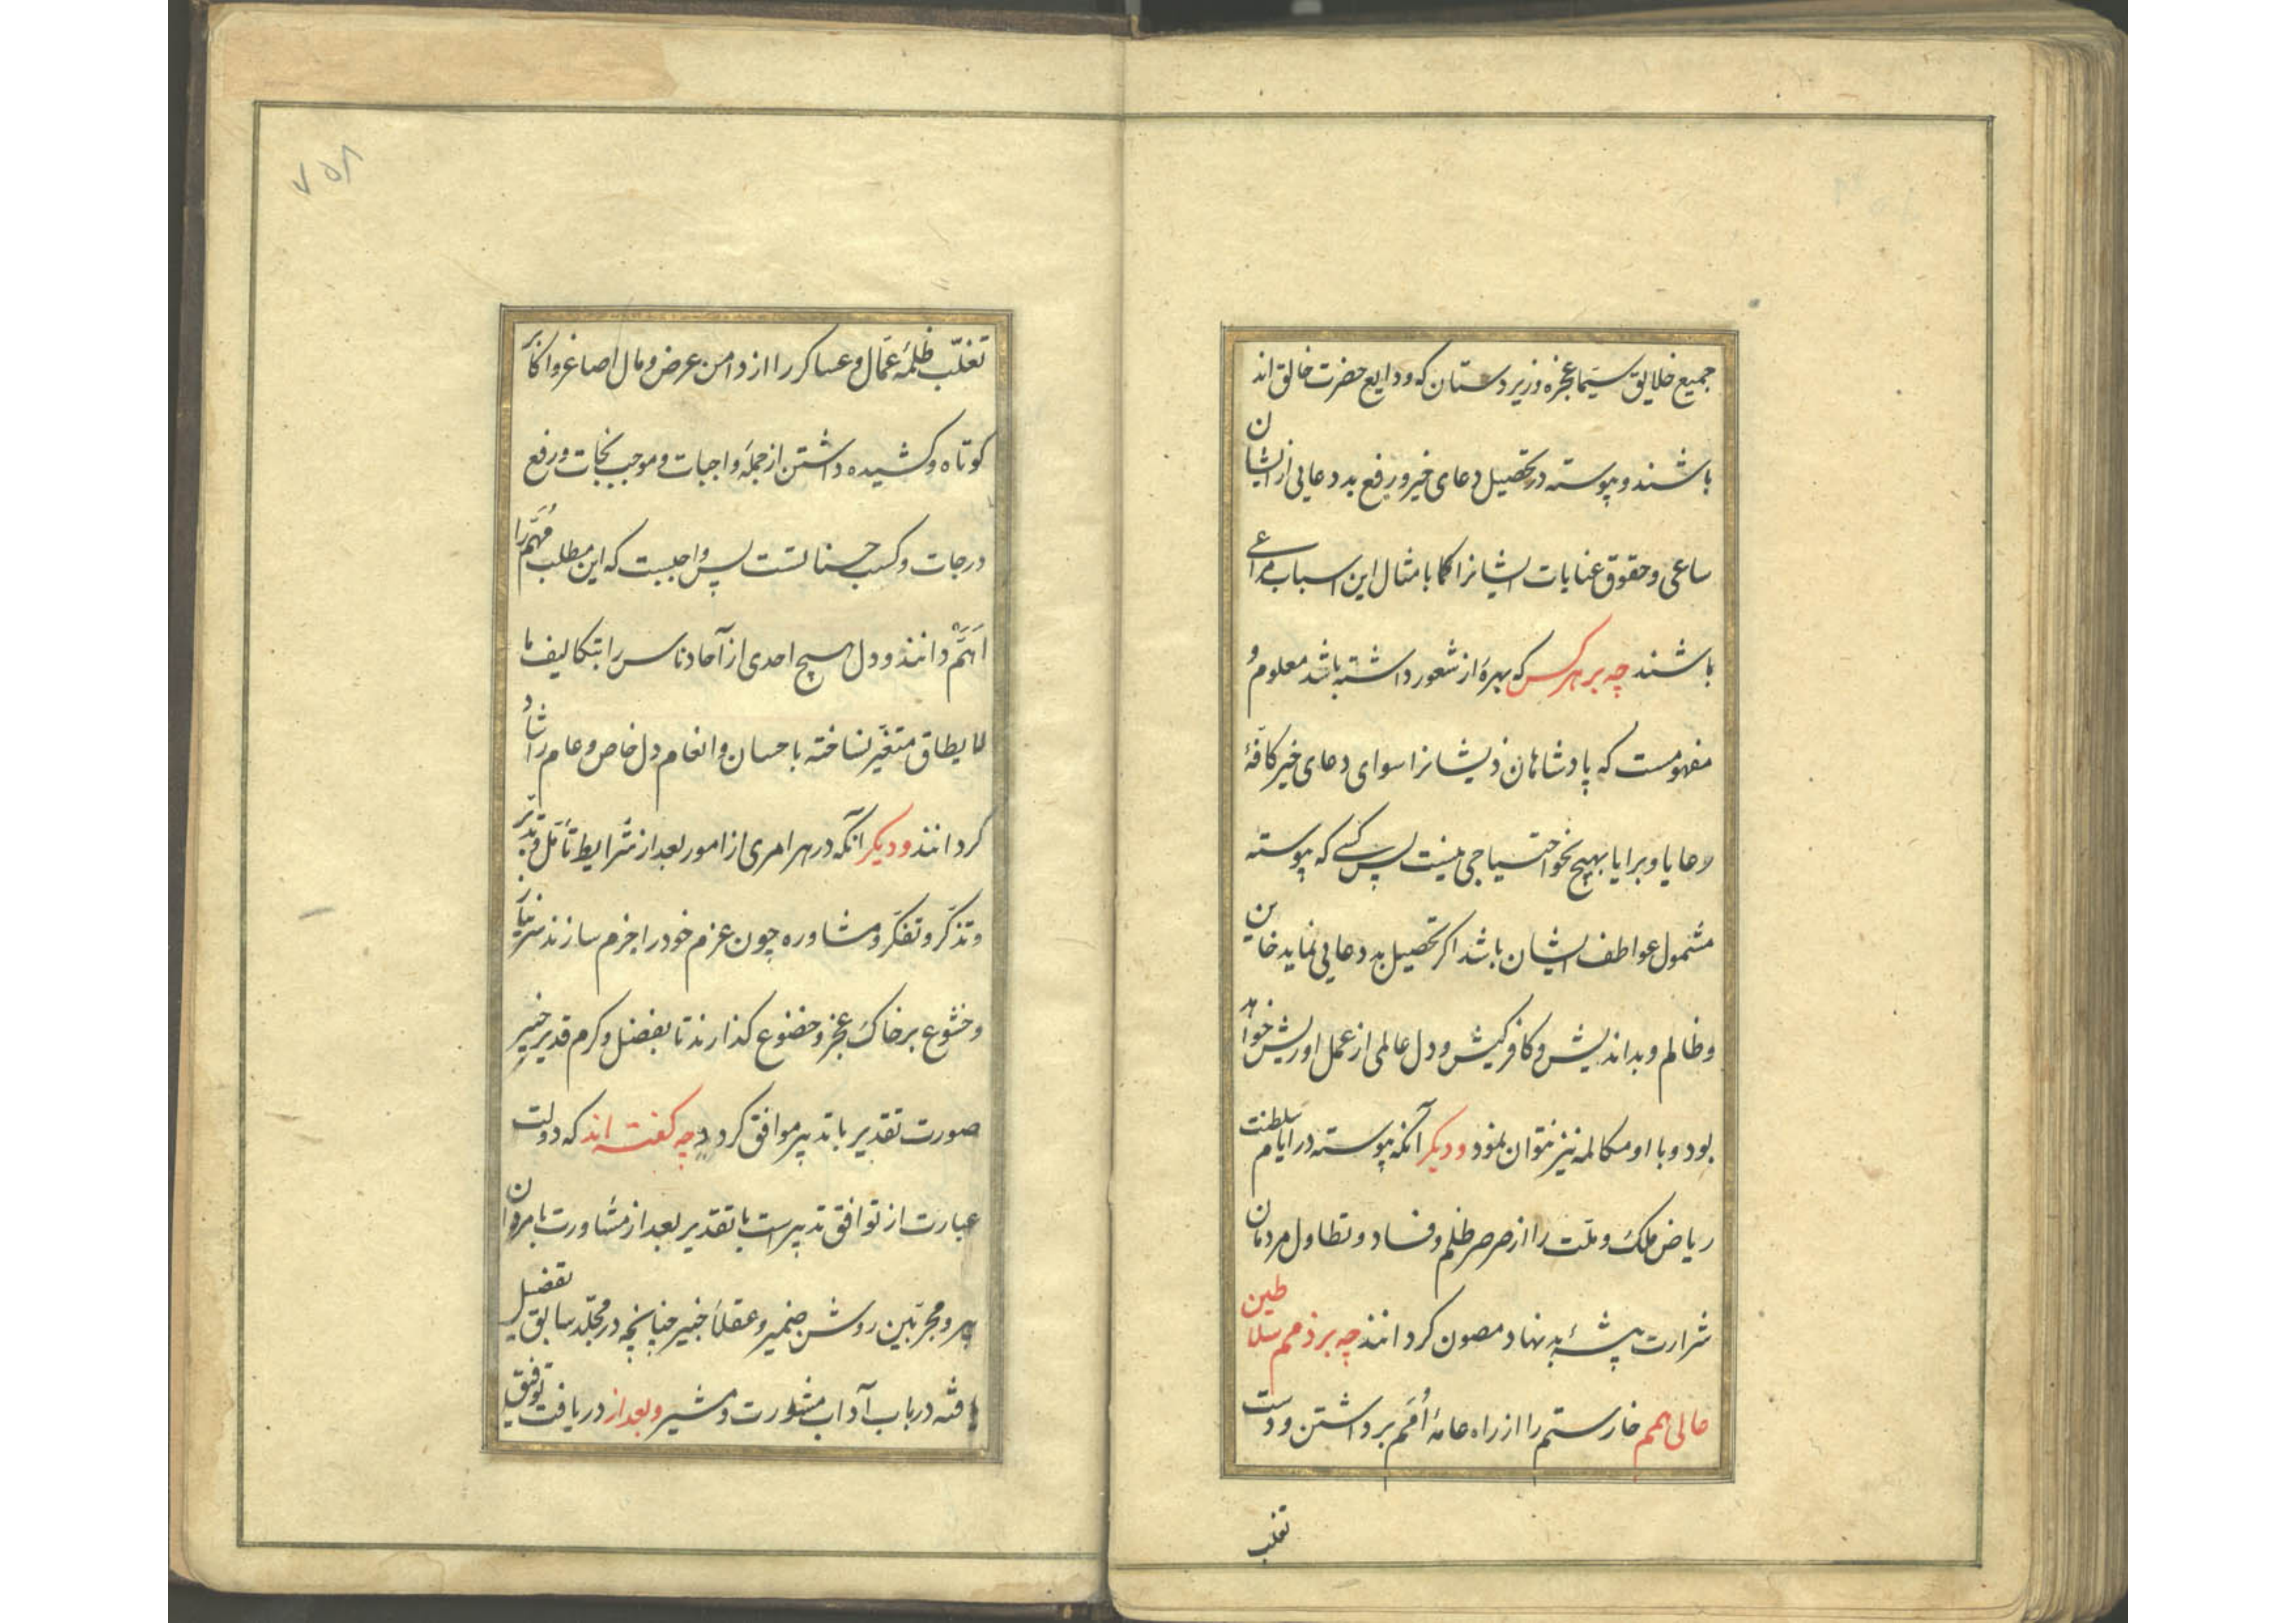 جمیع خلایق سیما عجزه و زیردستان که ودایع حضرت خالق اند
باشند و پیوسته در تحصیل دعای خیر و رفع بد دعایی از ایشان
ساعی و حقوق عنایات ایشانرا کما بامثال این اسباب مراعی
باشند چه بر هر کس که بهرهٔ از شعور داشته باشد معلوم و
مفهومست که پادشاهان ذیشانرا سوای دعای خیر کافّهٔ
رعایا و برایا بهیچ نحو احتیاجی نیست پس کسی که پیوسته
مشمول عواطف ایشان باشد اکر تحصیل بد دعایی نماید خاین
و ظالم و بداندیش و کافرکیش و دل عالمی از عمل او ریش خواهد
بود و با او مکالمه نیز نتوان نمود و دیکر آنکه پیوسته در ایام سلطنت
ریاض ملک و ملّت را از صرصر ظلم و فساد و تطاول مردمان
شرارت پیشهٔ بدنهاد مصون کردانند چه بر ذمم سلاطین
عالی همم خار ستم را از راه عامهٔ اُمَم برداشتن و دست
تغلب
٧٥٨
تغلّب ظلمهٔ عمّال و عساکر را از دامن عرض و مال اصاغر و اکابر
کوتاه و کشیده داشتن از جملهٔ واجبات و موجب نجات و رفع
درجات و کسب حسناتست پس واجبست که این مطلب مُهَمّ را
اَهَمّ دانند و دل هیچ احدی از آحاد ناس را بتکالیف ما
لا یطاق متغیّر نساخته باحسان و انعام دل خاص و عام را شاد
کردانند و دیکر آنکه در هر امری از امور بعد از شرایط تأمّل و تدبّر
و تذکّر و تفکّر و مشاوره چون عزم خود را جزم سازند سر نیاز
و خشوع بر خاک عجز و خضوع کذارند تا بفضل و کرم قدیر خبیر
صورت تقدیر با تدبیر موافق کردد چه کفته اند که دولت
عبارت از توافق تدبیر است با تقدیر بعد از مشاورت با مردان
پیر و مجرّبین روشن ضمیر و عقلاءِ خبیر چنانچه در مجلّد سابق تفضیل
یافته در باب آداب مشورت و مشیر و بعد از دریافت توفیق